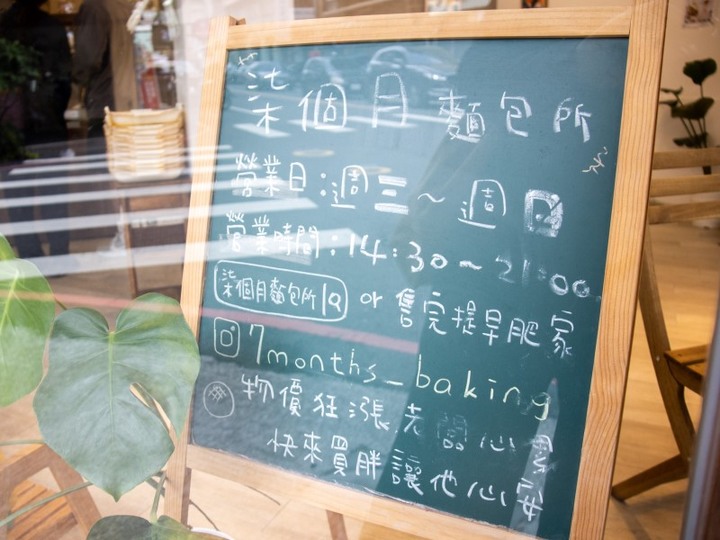 柒個月麵包所
營業日:週三~週日
營業時間:14:30~21:00
柒個月麵包所 or 售完提早肥家
7months_baking
物價狂漲老闆心累
快來買胖讓他心安